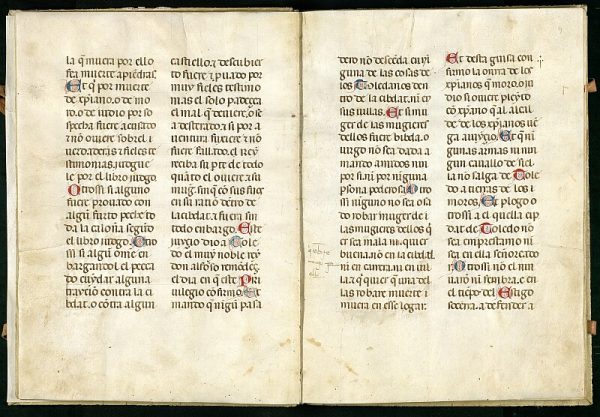 la q̃ muera por ello
sea muerte a piedras.
Et q̃ por muerte
de xp̃iano. o de mo
ro. o de iudio por so
specha fuere acusato
⁊ nõ ouiere sobrel. i
ueraderas ⁊ fieles tes
timonias. judgue
le por el libro judgo.
Otrossi si alguno
fuere prouato con
algũ furto peche to
da la caloña segũt
el libro judgo. Otro
ssi si algũ ome en
bargante el pecca
do cuydar alguna
trayciõ contra la ci
bdat. o cõtra algun
castiello. ⁊ descubier
to fuere ⁊ puato por
muy fieles testimo
nias el solo padezca
el mal q̃ deuiere. o se
a desterrado. ⁊ si por a
uentura fuxiere ⁊ nõ
fuere fallado. el rey
reciba su pte de tedo
quãto el ouiere. ⁊ su
mug̃ finq̃ cõ sus fijos
en su ratiõ detro de
la cibdat. ⁊ fuera sin
tedo enbargo. Este
iuyzio dio a Tole
do el muy noble rey
don alfõso remõdez
el dia en q̃ este Pri
uilegio cõfirmo. Et
manto q̃ nigũ pasa
dero nõ descẽda en ni
guna de las cosas de
los Toledanos den
tro de la cibdat. ni en
sus uillas. Et si mu
ger de las mugieres
dellos fuere bibda. o
uirgo no sea dada a
marito amidos nin
por si. ni por niguna
p̃sona poderosa. Otro
ssi niguno no sea osa
do robar muger de
las mugieres dellos q̃
sea mala ni. quier
buena. nõ en la cibdat.
ni en carrera. ni en uil
la. ⁊ qui quier q̃ una del
las robare muerte i
muera en esse logar.
Et desta guisa con
firmo la onrra de los
xp̃ianos q̃ moro. o iu
dio si ouiere pleyto
cõ xp̃iano. q̃ al alcal
de de los xp̃ianos uẽ
ga a iuyzio. Et q̃ ni
gunas armas ni nin
gun cauallo de sie
lla no salga de Tole
do a tierras de los
moros. Et plogo. o
trossi a el quella cip
dat de Toledo nõ
sea emprestamo. ni
sea en ella señoreato
Otrossi nõ el nin
uarõ ni fembra. e en
el tiepo del Esugo
socerra. a defender a